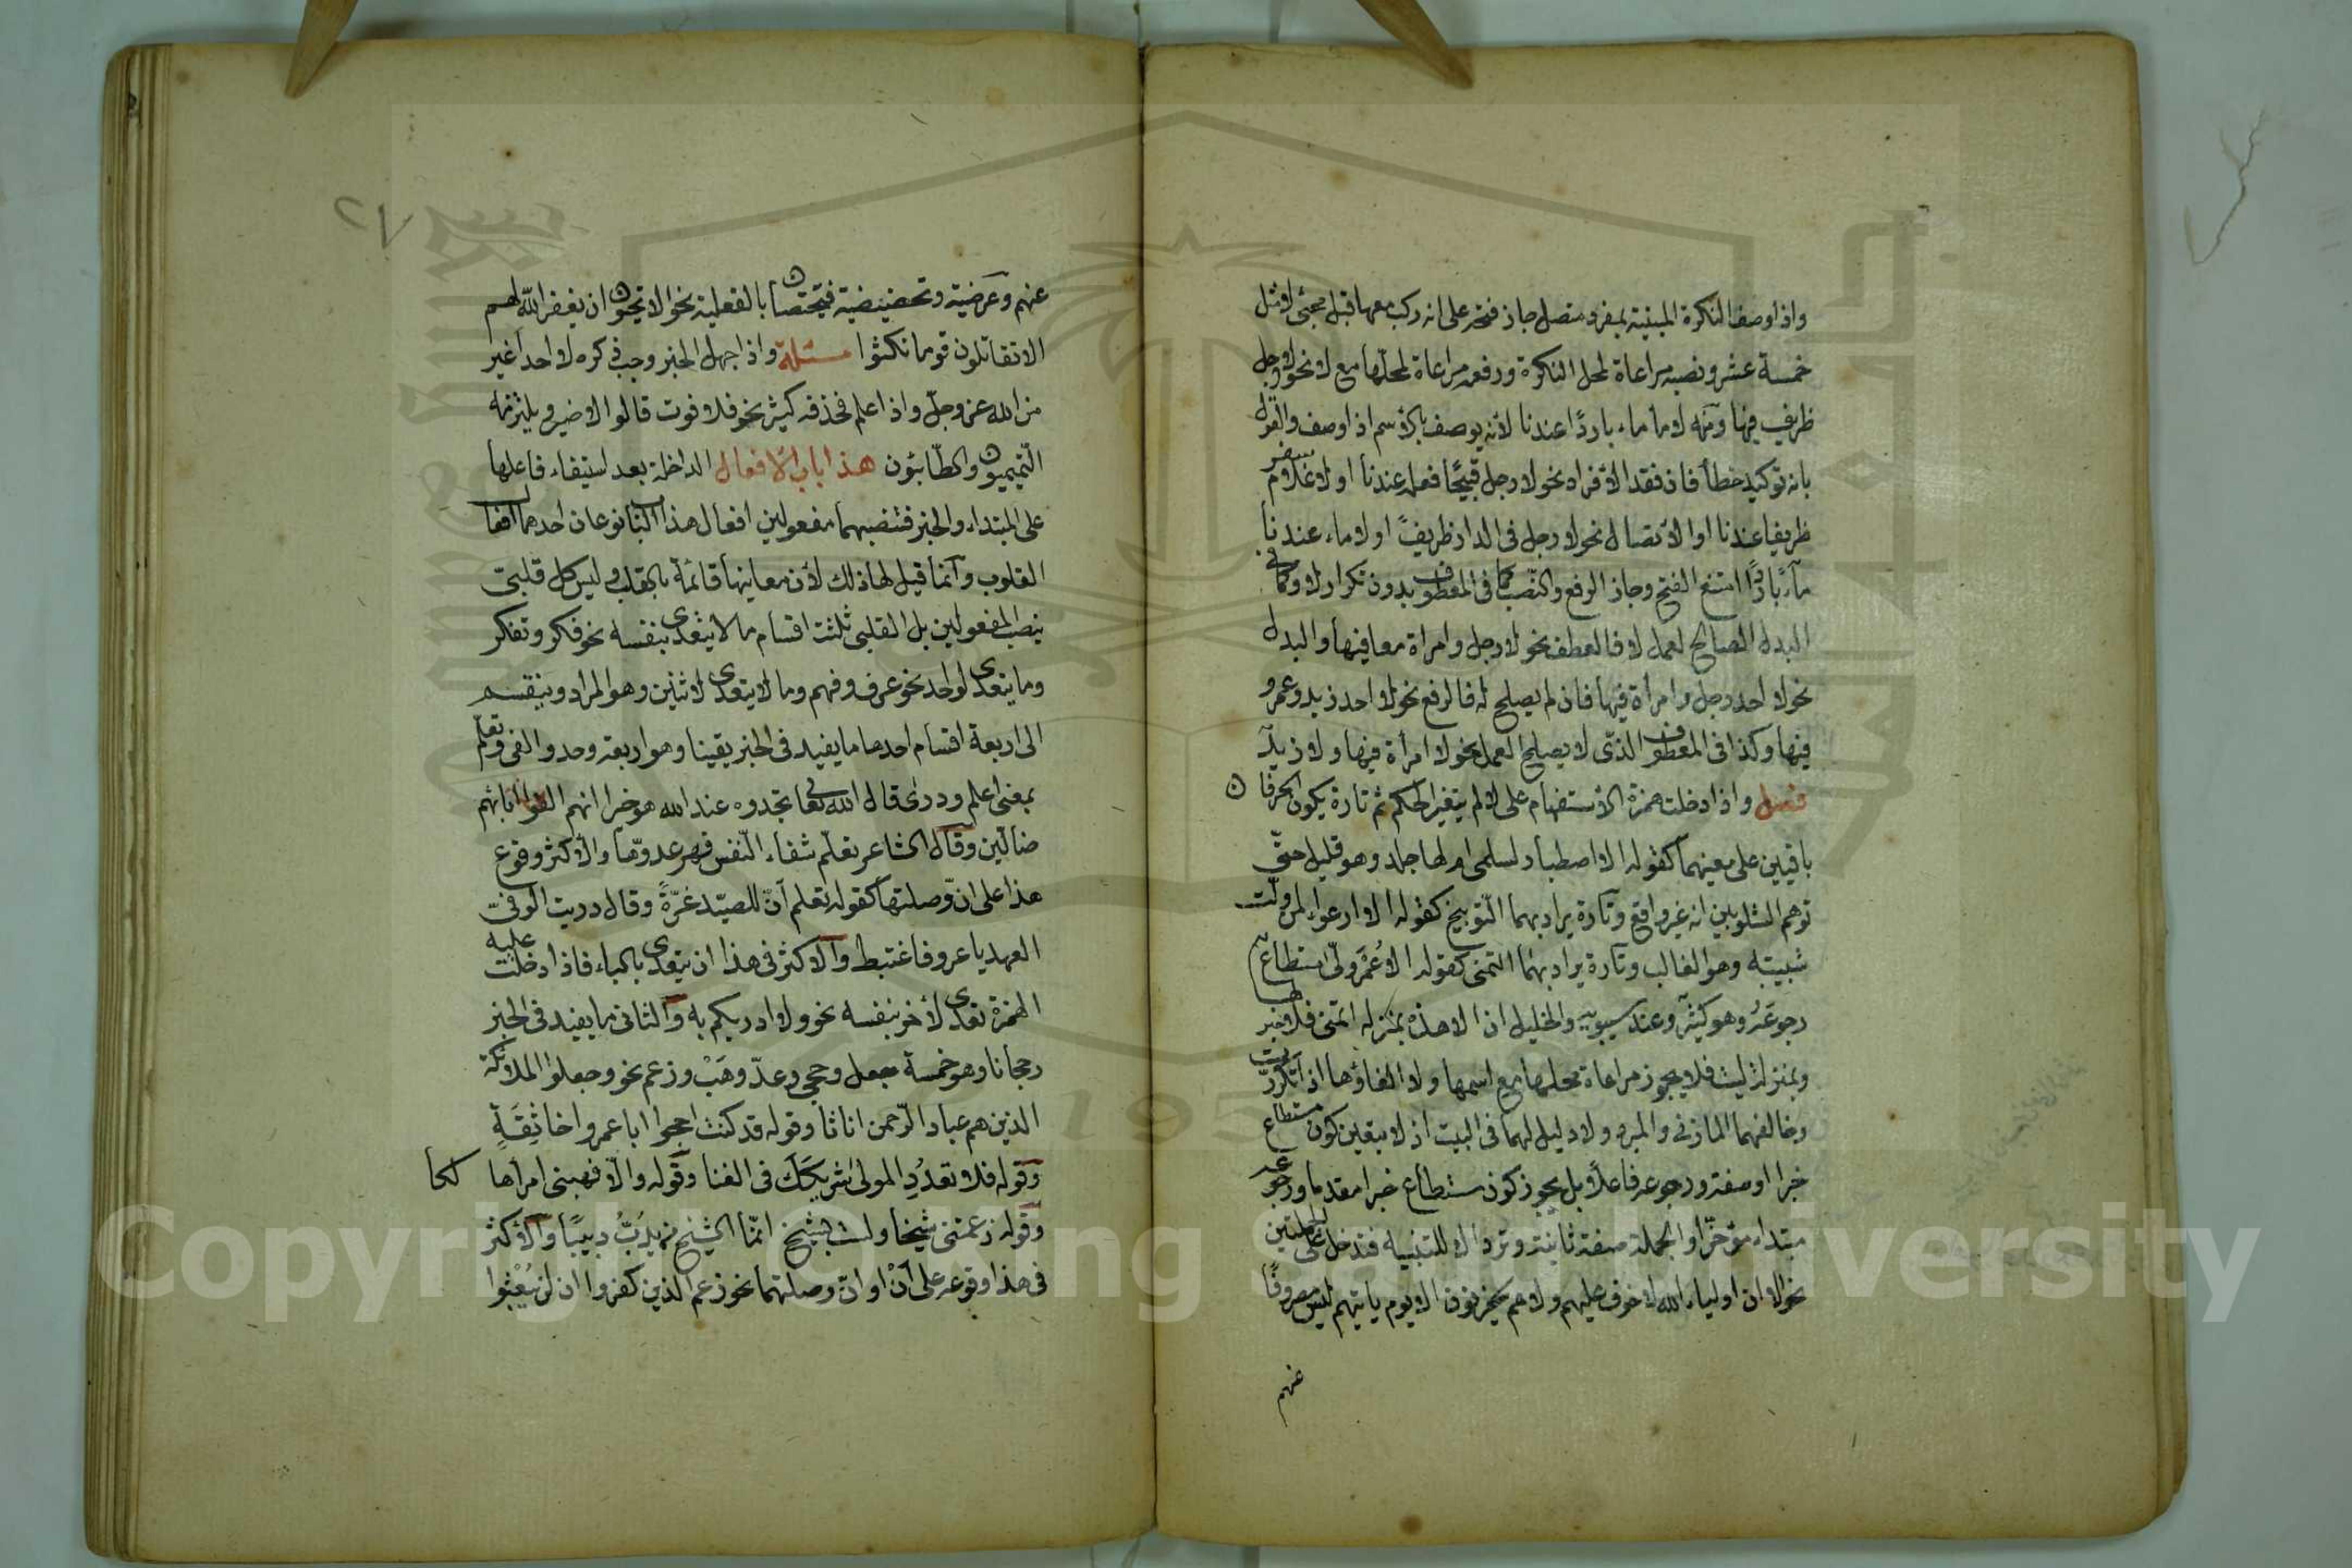 واذا وصف النكرة المبنية بمفرد متصل جاز فتحه على انه ركب معها قبل مجئ لا مثل
خمسة عشر ونصبه مراعاة لمحل النكرة ورفعه مراعاة لمحلها مع لا نحو لا رجل
ظريف فيها ومنه لا ماء ماء باردًا عندنا لانه يوصف بالاسم اذا وصف والقول
بانه توكيد خطأ فان فقد الافراد نحو لا رجل قبيحًا فعله عندنا او لا غلام سفر
ظريفا عندنا او الاتصال نحو لا رجل في الدار ظريفٌ او لا ماء عندنا
ماءً باردًا امتنع الفتح وجاز الرفع والنصب كما في المعطوف بدون تكرار لا وكما في
البدل الصالح لعمل لا فالعطف نحو لا رجل وامراة معا فيها والبدل
نحو لا احد رجل وامرأة فيها فان لم يصلح له فالرفع نحو لا احد زيد وعمرو
فيها وكذا في المعطوف الذى لا يصلح لعمل نحو لا امرأة فيها ولا زيد
فصل واذا دخلت همزة الاستفهام على لا لم يتغير الحكم ثم تارة يكون الحرفان
باقيين على معنيهما كقوله الا اصطبار لسلمى ام لها جلد وهو قليل حتى
توهم الشلوبين انه غير واقع وتارة يراد بهما التوبيخ كقوله الا ارعواء لمن ولت
شبيبته وهو الغالب وتارة يراد بهما التمنى كقوله الا عُمَرَ ولّى مستطاع
رجوعه وهو كثير وعند سيبويه والخليل ان الا هذه بمنزلة اتمنى فلا خبر لها
وبمنزلة ليت فلا يجوز مراعاة محلها مع اسمها ولا الغاؤها اذا تكررت
وخالفهما المازنى والمبرد ولا دليل لهما في البيت اذ لا يتعين كون مستطاع
خبرا او صفة ورجوعه فاعلًا بل يجوز كون مستطاع خبرا مقدما ورجوعه
مبتداء مؤخرًا والجملة صفة ثانية وترد الا للتنبيه فتدخل على الجملتين
نحو الا ان اولياء الله لا خوف عليهم ولا هم يحزنون الا يوم يأتيهم ليس مصروفًا
عنهم
٢٧
عنهم وعرضية وتحضيضية فيختصان بالفعلية نحو الا تحبون ان يغفر الله لهم
الا تقاتلون قوما نكثوا مسئلة واذا جهل الخبر وجب ذكره لا احد اغير
من الله عز وجل واذا علم فحذفه كثير نحو فلا فوت قالوا لا ضير ويلتزمه
التميميون والطائيون هذا باب الافعال الداخلة بعد استيفاء فاعلها
على المبتداء والخبر فتنصبهما مفعولين افعال هذا الباب نوعان احدهما افعال
القلوب وانما قيل لها ذلك لان معانيها قائمة بالقلب وليس كل قلبى
ينصب المفعولين بل القلبى ثلثة اقسام ما لا يتعدى بنفسه نحو فكر وتفكر
وما يتعدى لواحد نحو عرف وفهم وما لا يتعدى لاثنين وهو المراد وينقسم
الى اربعة اقسام احدها ما يفيد في الخبر يقينا وهو اربعة وجد والفى وتعلم
بمعنى اعلم ودرى قال الله تعالى تجدوه عند الله هو خيرا انهم الفوا اباءهم
ضالين وقال الشاعر تعلّم شفاء النّفس قهر عدوّها والأكثر وقوع
هذا على انّ وصلتها كقوله تعلم انّ للصيد غرّةً وقال دريت الوفىّ
العهد يا عرو فاغتبط والاكثر في هذا ان يتعدى بالباء فاذا دخلت عليه
الهمزة تعدى لآخر بنفسه نحو ولا ادريكم به والثانى ما يفيد في الخبر
رجحانا وهو خمسة جعل وحجى وعدّ وهَبْ وزعم نحو وجعلوا الملائكة
الذين هم عباد الرّحمن اناثا وقوله قد كنت احجوا ابا عمرو اخا ثِقَةٍ
وقوله فلا تعدُدِ المولى شريكَكَ في الغنا وقوله والا فهبنى امرأ هالكا
وقوله زعمتنى شيخا ولست بشيخ انّما الشيخ من يدبُّ دبيبًا والاكثر
في هذا وقوعه على أنْ او انّ وصلتهما نحو زعم الذين كفروا ان لن يُبْعثوا